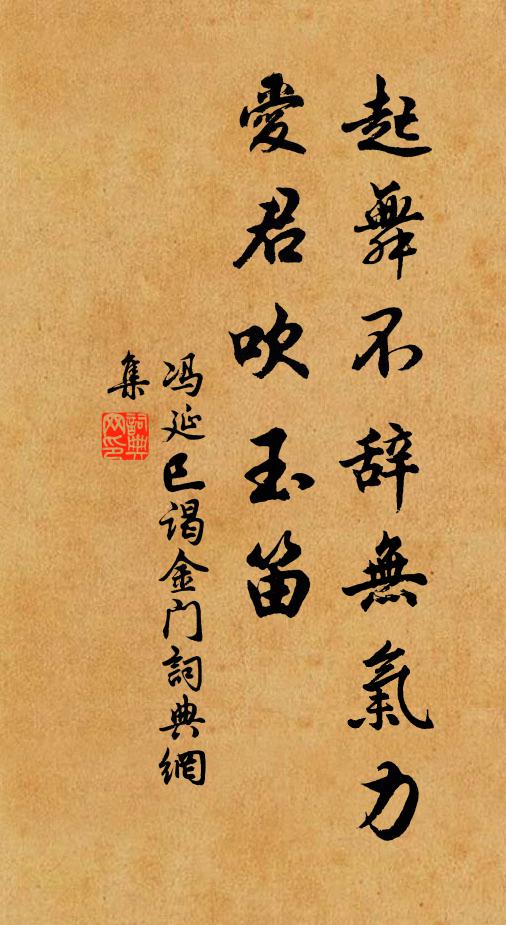 起舞不辞無氣力
愛君吹玉笛
冯延巳谒金门詞典網
集
詞典网印